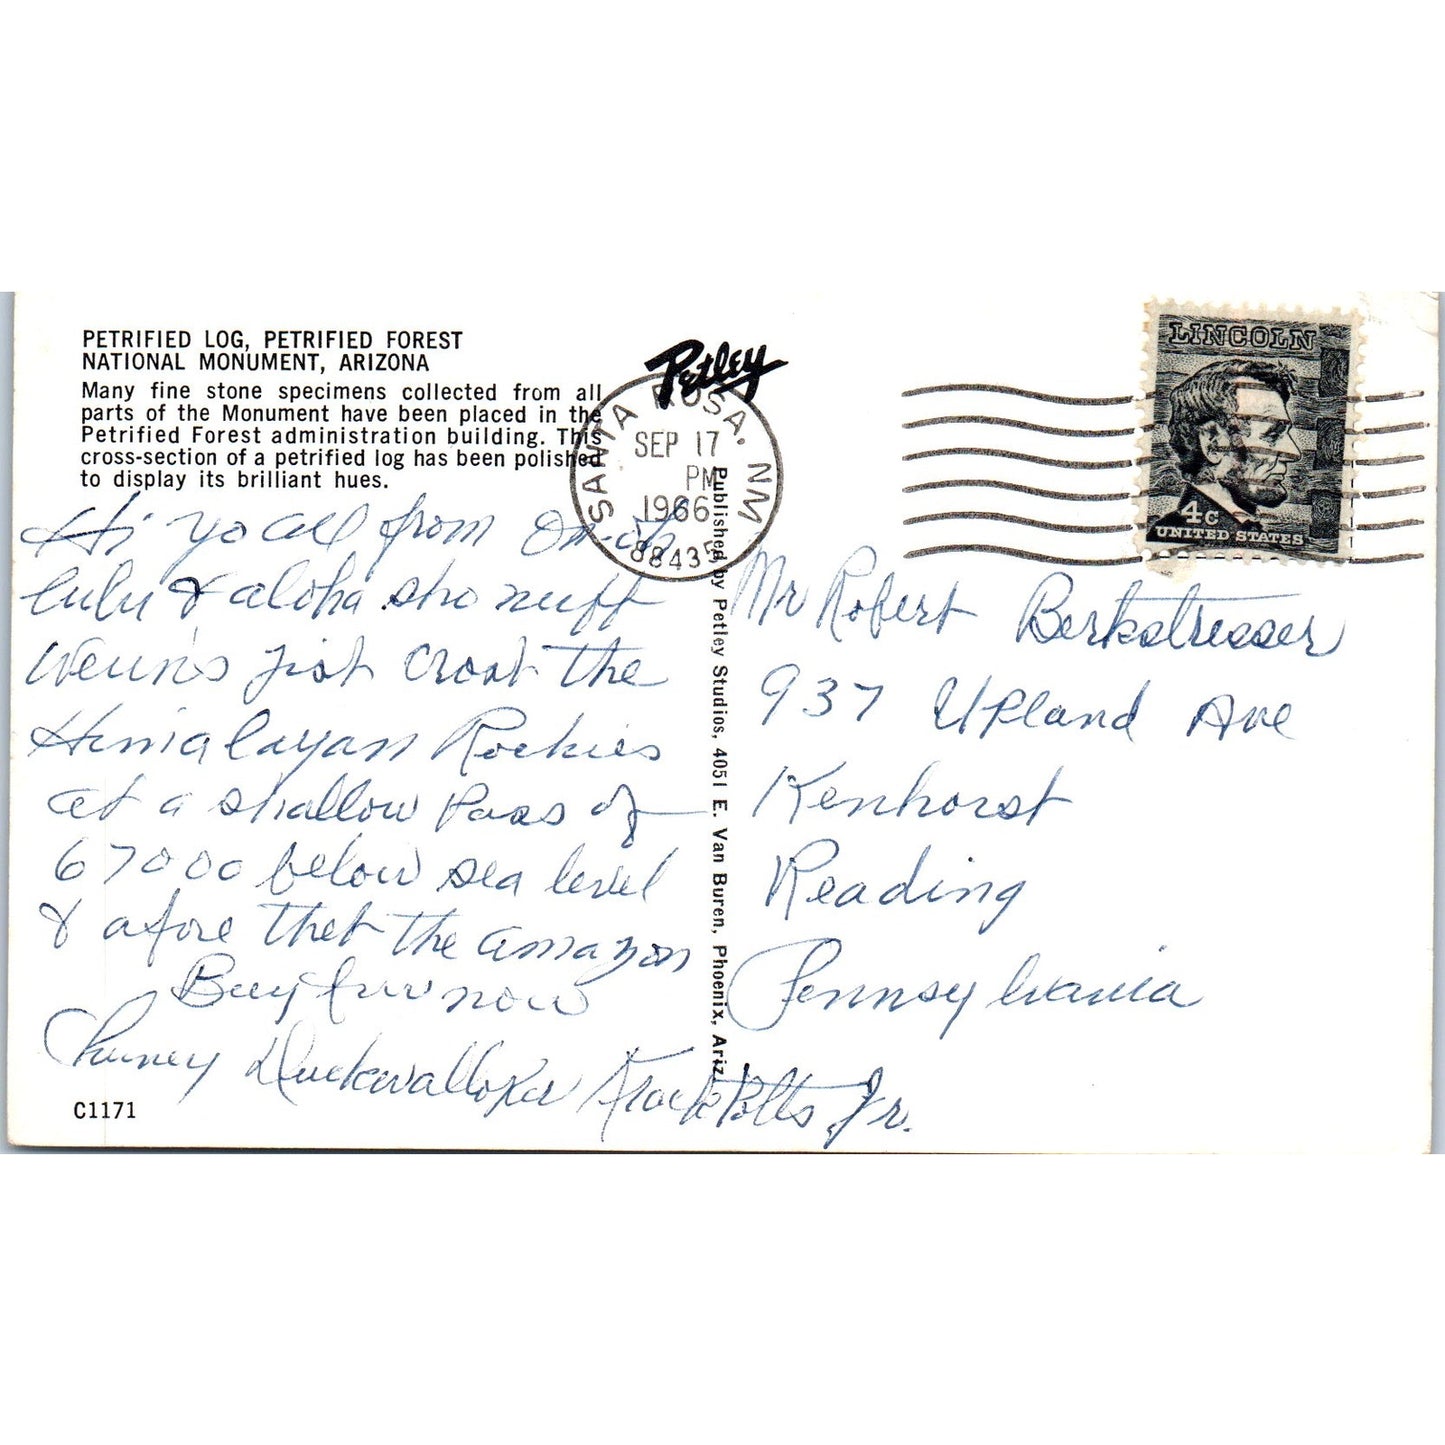 PETRIFIED LOG, PETRIFIED FOREST
NATIONAL MONUMENT, ARIZONA
Many fine stone specimens collected from all
parts of the Monument have been placed in the
Petrified Forest administration building. This
cross-section of a petrified log has been polished
to display its brilliant hues.
Hi yo all from
lulu & aloha sho nuff
Weuns jist crost the
Himalayan Rockies
at a shallow Pass of
67000 below sea level
& afore thet the amazon
Bay now
Duckwalloper Potts Jr.
C1171
Petley
SANTA ROSA, NM
SEP 17
PM
1966
88435
Published by Petley Studios, 4051 E. Van Buren, Phoenix, Ariz.
LINCOLN
4c
UNITED STATES
Mr Robert Berkstresser
937 Upland Ave
Kenhorst
Reading
Pennsylvania